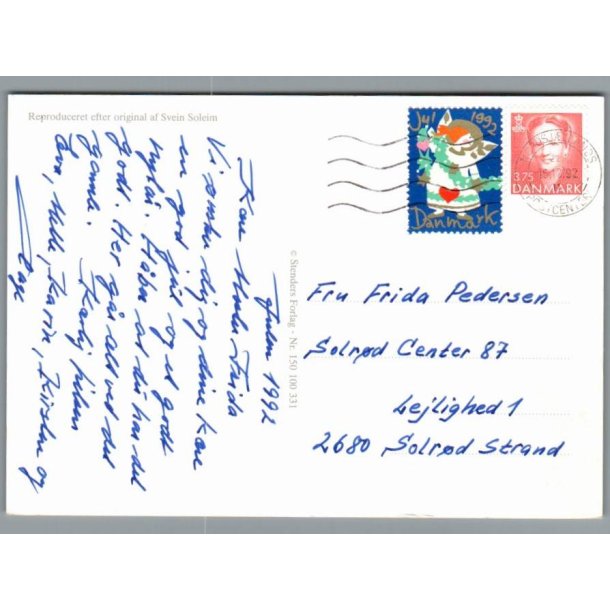 Reproduceret efter original af Svein Soleim
Julen 1992
Kære Moster Frida
Vi ønsker dig og dine kære
en god jul og et godt
nytår. Håber at du har det
godt. Her går alt ved det
gamle. Kærlig hilsen
Lars, Helle, Karin, Kirsten og
Aage
© Stenders Forlag - Nr. 150 100 331
Jul 1992
Danmark
3.75
DANMARK
Fru Frida Pedersen
Solrød Center 87
Lejlighed 1
2680 Solrød Strand